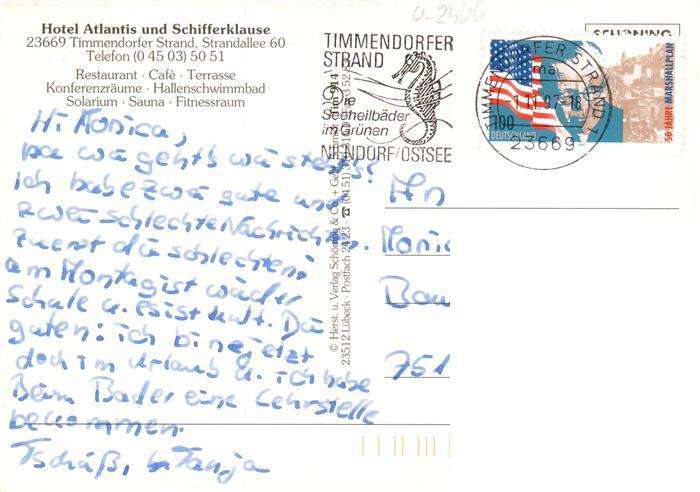 Hotel Atlantis und Schifferklause
23669 Timmendorfer Strand, Strandallee 60
Telefon (0 45 03) 50 51
Restaurant · Café · Terrasse
Konferenzräume · Hallenschwimmbad
Solarium · Sauna · Fitnessraum
Hi Monica,
na wie geht's wie steht's?
Ich habe zwei gute und
zwei schlechte Nachrichten.
Zuerst die schlechten:
am Montag ist wieder
Schule u. es ist kalt. Die
guten: ich bin jetzt
doch im Urlaub u. ich habe
Beim Bader eine Lehrstelle
bekommen.
Tschüß, Tanja
© Herst. u. Verlag Schöning & Co. + Ge
23512 Lübeck · Postfach 24 23 · ☎ (04 51)
TIMMENDORFER
STRAND
Die
Seeheilbäder
im Grünen
NIENDORF/OSTSEE
TIMMENDORFER STRAND 1
-1.11.97-18
23669
100
DEUTSCHLAND
50 JAHRE MARSHALLPLAN
SCHÖNING
An
Monic
Bau
751